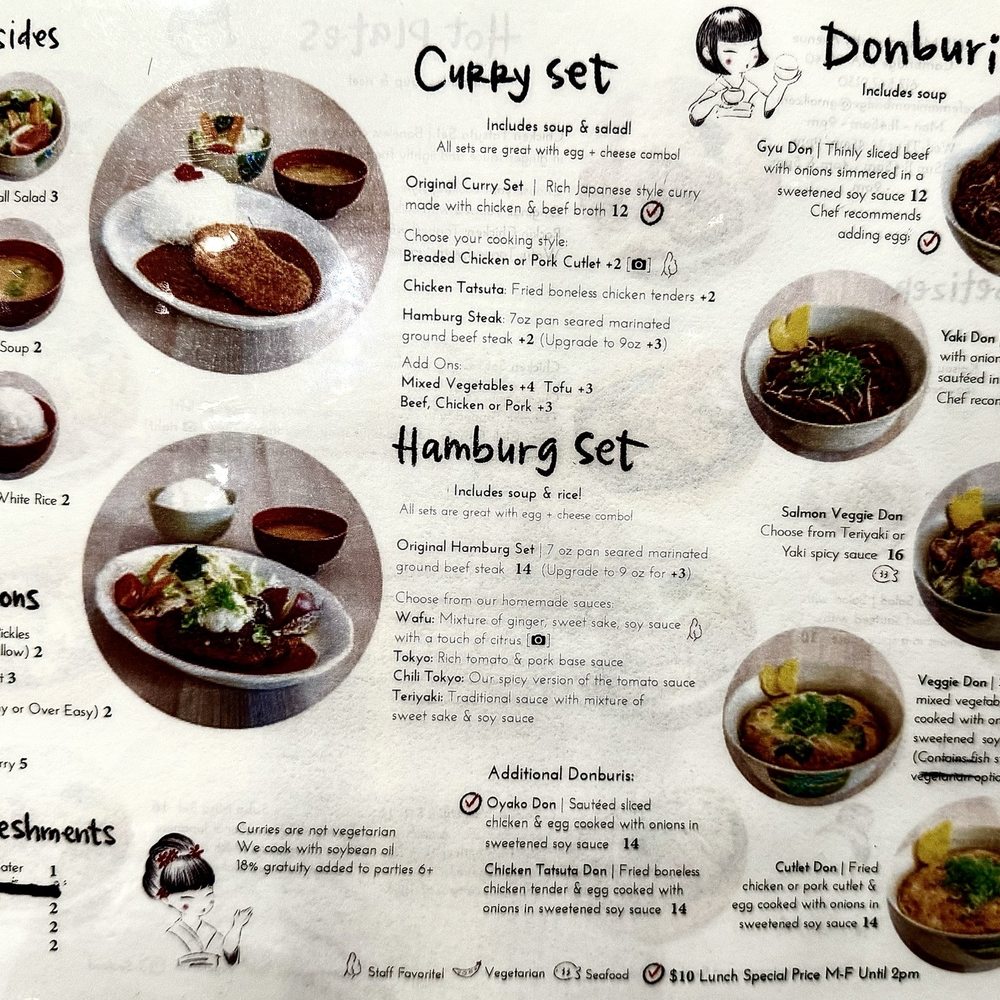 sides
all Salad 3
Soup 2
White Rice 2
ons
ickles
llow) 2
t 3
y or Over Easy) 2
rry 5
eshments
ater 1
2
2
2
Curry set
Includes soup & salad!
All sets are great with egg + cheese combo!
Original Curry Set | Rich Japanese style curry
made with chicken & beef broth 12
Choose your cooking style:
Breaded Chicken or Pork Cutlet +2
Chicken Tatsuta: Fried boneless chicken tenders +2
Hamburg Steak: 7oz pan seared marinated
ground beef steak +2 (Upgrade to 9oz +3)
Add Ons:
Mixed Vegetables +4 Tofu +3
Beef, Chicken or Pork +3
Hamburg set
Includes soup & rice!
All sets are great with egg + cheese combo!
Original Hamburg Set | 7 oz pan seared marinated
ground beef steak 14 (Upgrade to 9 oz for +3)
Choose from our homemade sauces:
Wafu: Mixture of ginger, sweet sake, soy sauce
with a touch of citrus
Tokyo: Rich tomato & pork base sauce
Chili Tokyo: Our spicy version of the tomato sauce
Teriyaki: Traditional sauce with mixture of
sweet sake & soy sauce
Additional Donburis:
Oyako Don | Sautéed sliced
chicken & egg cooked with onions in
sweetened soy sauce 14
Chicken Tatsuta Don | Fried boneless
chicken tender & egg cooked with
onions in sweetened soy sauce 14
Curries are not vegetarian
We cook with soybean oil
18% gratuity added to parties 6+
Donburi
Includes soup
Gyu Don | Thinly sliced beef
with onions simmered in a
sweetened soy sauce 12
Chef recommends
adding egg!
Yaki Don
with onion
sautéed in
Chef recor
Salmon Veggie Don
Choose from Teriyaki or
Yaki spicy sauce 16
Veggie Don |
mixed vegetab
cooked with on
sweetened soy
(Contains fish s
vegetarian optio
Cutlet Don | Fried
chicken or pork cutlet &
egg cooked with onions in
sweetened soy sauce 14
Staff Favorite! Vegetarian Seafood $10 Lunch Special Price M-F Until 2pm